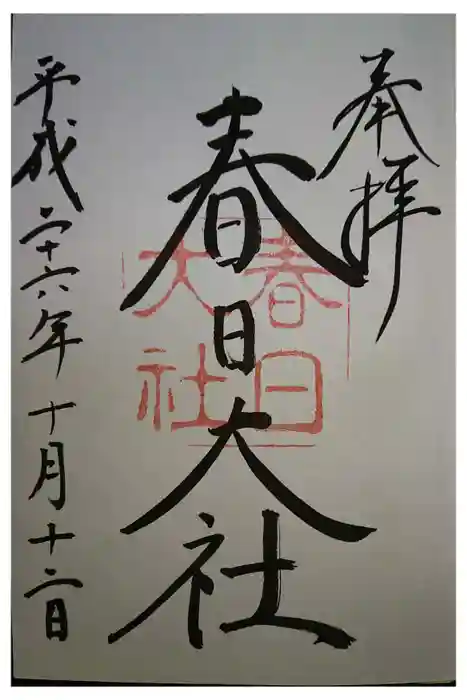 奉拝
春日大社
春日
大社
平成二十六年十月十二日